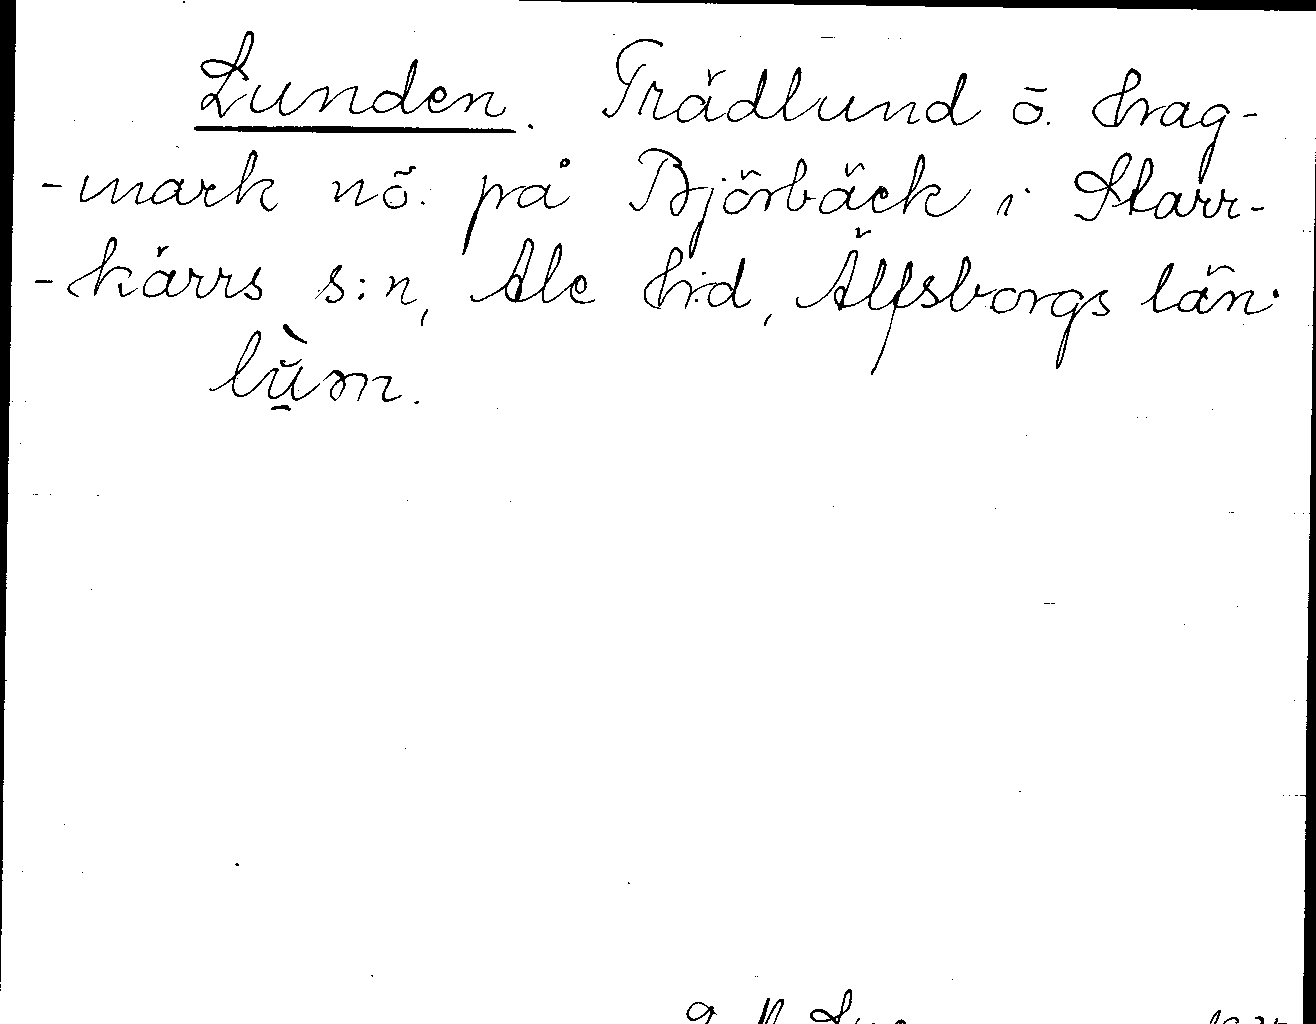 Lunden. Trädlund ö. hag-
-mark nö. på Björbäck i Starr-
-kärrs s:n, Ale h:d, Älfsborgs län.
lùm.